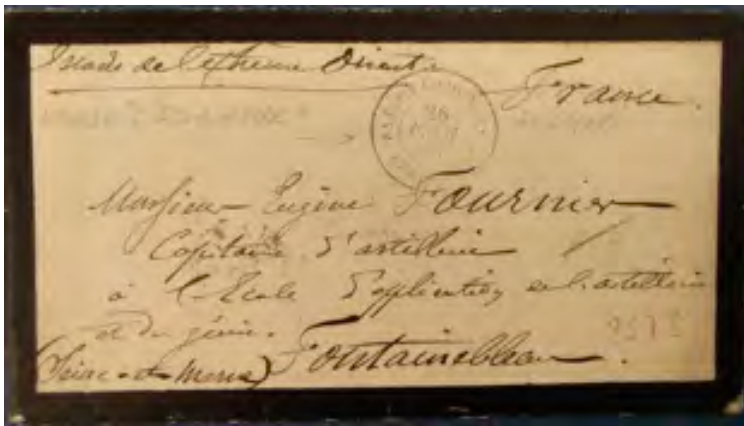 Escadre de l'Extrême Orient
France.
Monsieur Eugène Fournier
Capitaine d'artillerie
à l'Ecole d'application de l'artillerie
et du génie.
(Seine-et-Marne) Fontainebleau.